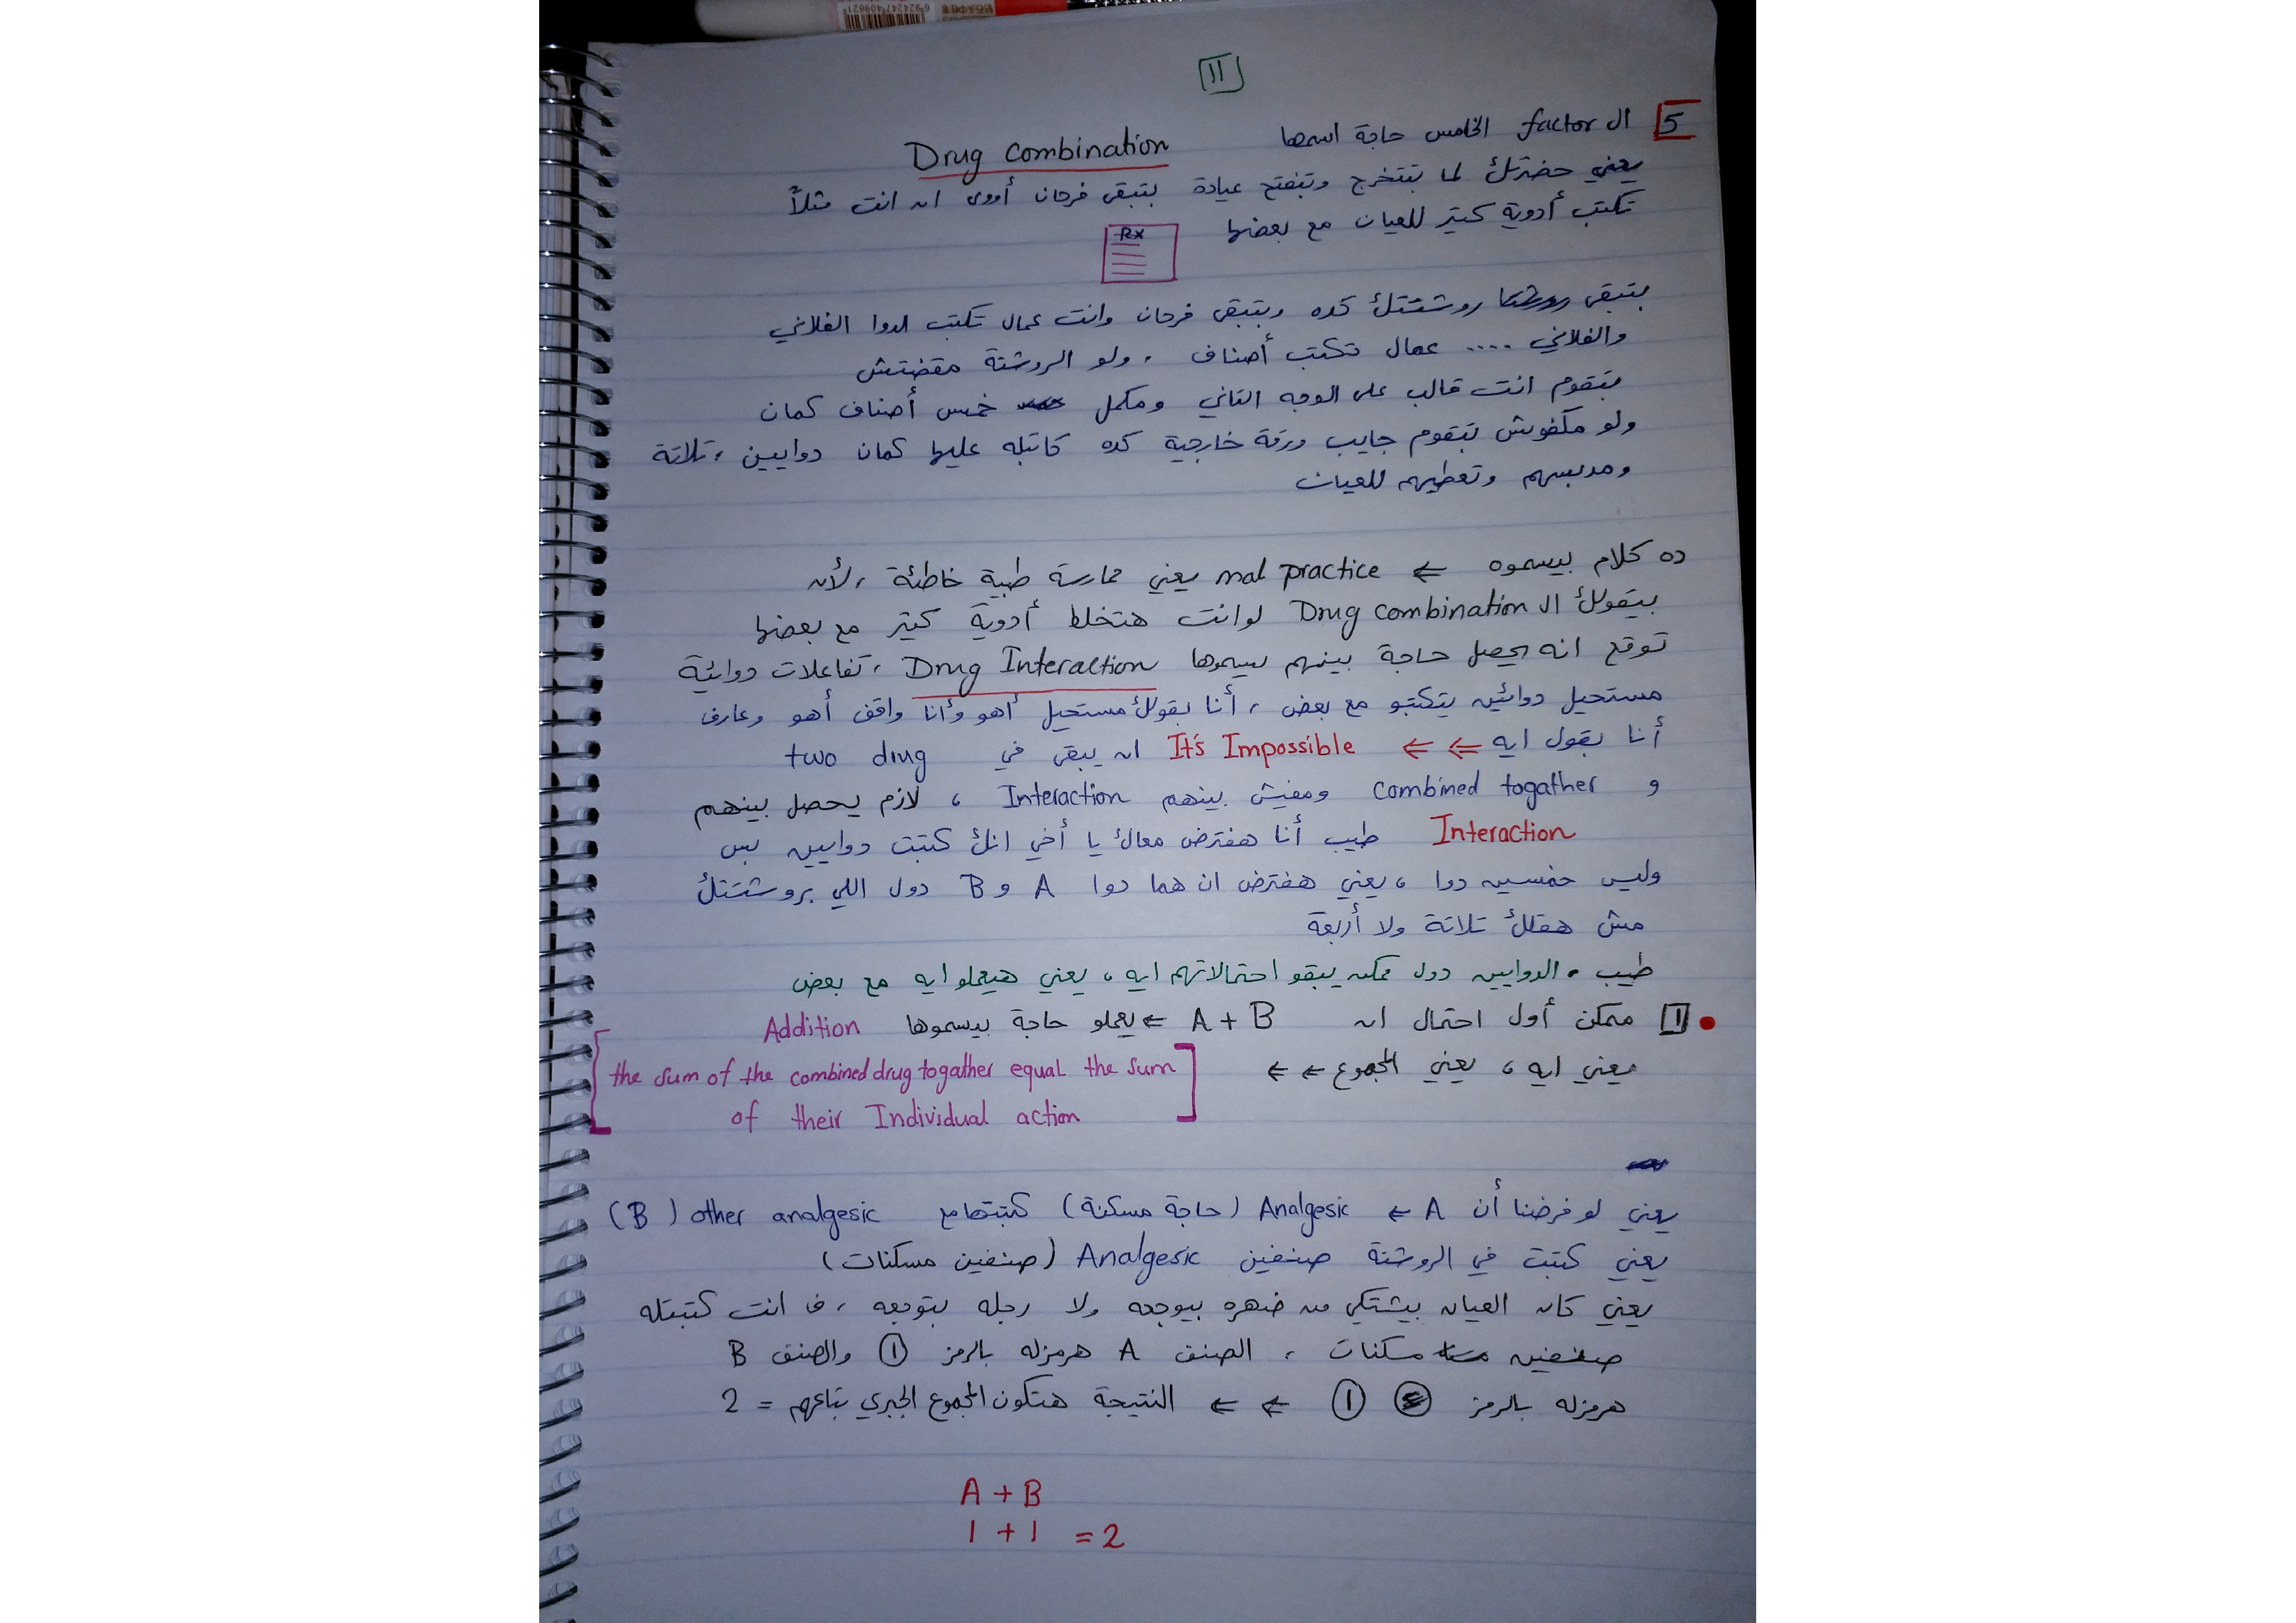 11
5 ال factor الخامس حاجة اسمها Drug combination
يعني حضرتك لما بتتخرج وتفتح عيادة بتبقى فرحان أووى ان انت مثلاً
تكتب أدوية كتير للعيان مع بعضها
RX
بتبقى روشتتك كده وبتبقى فرحان وانت عمال تكتب لدوا الفلاني
والفلاني .... عمال تكتب أصناف ، ولو الروشتة مقضتش
بتقوم انت قالب على الوجه التاني ومكمل خمس أصناف كمان
ولو مكفوش بتقوم جايب ورقة خارجية كده كاتبله عليها كمان دوايين ، تلاتة
ومدبسهم وتعطيهم للعيان
ده كلام بيسموه ⇐ mal practice يعني ممارسة طبية خاطئة ، لأن
بيقولك ال Drug combination لو انت هتخلط أدوية كتير مع بعضها
توقع انه يحصل حاجة بينهم بيسموها Drug Interaction ، تفاعلات دوائية
مستحيل دوائين يتكتبو مع بعض ، أنا بقولك مستحيل أهو وأنا واقف أهو وعارف
أنا بقول ايه ⇐ ⇐ It's Impossible ان يبقى في two drug
و combined togather ومفيش بينهم Interaction ، لازم يحصل بينهم
Interaction طيب أنا هفترض معاك يا أخي انك كتبت دوايين بس
وليس خمسين دوا ، يعني هفترض ان هما دوا A و B دول اللي بروشتتك
مش هقلك تلاتة ولا أربعة
طيب . الدوايين دول ممكن يبقو احتمالاتهم ايه ، يعني هيعملو ايه مع بعض
1 ممكن أول احتمال ان A + B ⇐ يعملو حاجة بيسموها Addition
يعني ايه ، يعني المجموع ⇐ ⇐ [the sum of the combined drug togather equal the sum
of their Individual action]
يعني لو فرضنا أن A ⇐ Analgesic (حاجة مسكنة) كتبتها مع other analgesic (B)
يعني كتبت في الروشتة صنفين Analgesic (صنفين مسكنات)
يعني كان العيان بيشتكي من ضهره بيوجعه ولا رجله بتوجعه ، ف انت كتبتله
صنفين مسكنات ، الصنف A هرمزله بالرمز 1 والصنف B
هرمزله بالرمز 1 ⇐ ⇐ النتيجة هتكون المجموع الجبري بتاعهم = 2
A + B
1 + 1 = 2